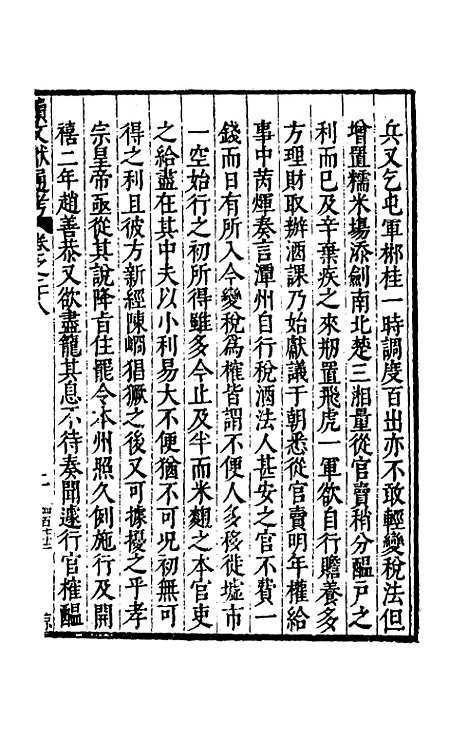 兵又乞屯軍郴桂一時調度百出亦不敢輕變稅法但
增置糯米場添創南北楚三湘量從官賣稍分醖戸之
利而已及辛棄疾之來剏置飛虎一軍欲自行贍養多
方理財取辦酒課乃始獻議于朝悉從官賣明年權給
事中芮煇奏言潭州自行稅酒法人甚安之官不費一
錢而日有所入今變稅為榷皆謂不便人多移徙墟市
一空始行之初所得雖多今止及半而米麴之本官吏
之給盡在其中夫以小利易大不便猶不可况初無可
得之利且彼方新經陳峒猖獗之後又可據擾之乎孝
宗皇帝亟從其說降旨住罷令本州照久例施行及開
禧二年趙善恭又欲盡籠其息不待奏聞遽行官榷醖
續文獻通考 卷之二十八